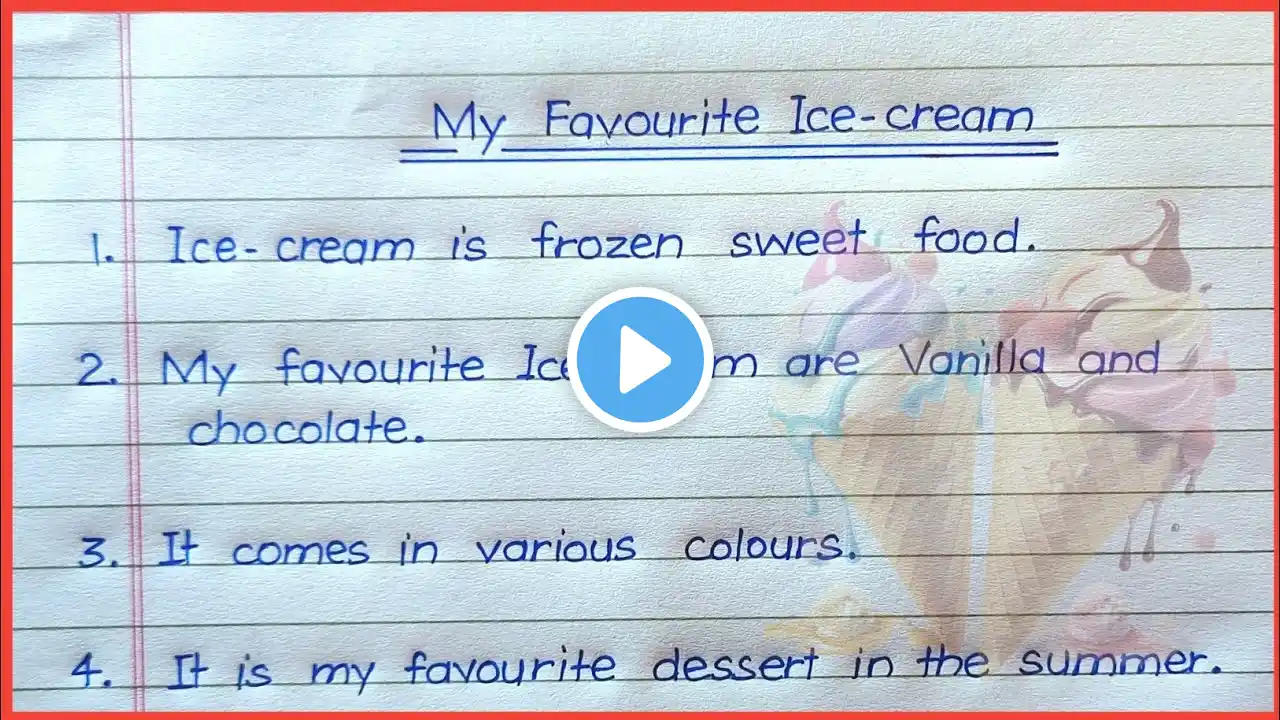 My Favourite Ice-cream
1. Ice-cream is frozen sweet food.
2. My favourite are Vanilla and
chocolate.
3. It comes in various colours.
4. It is my favourite dessert in the summer.